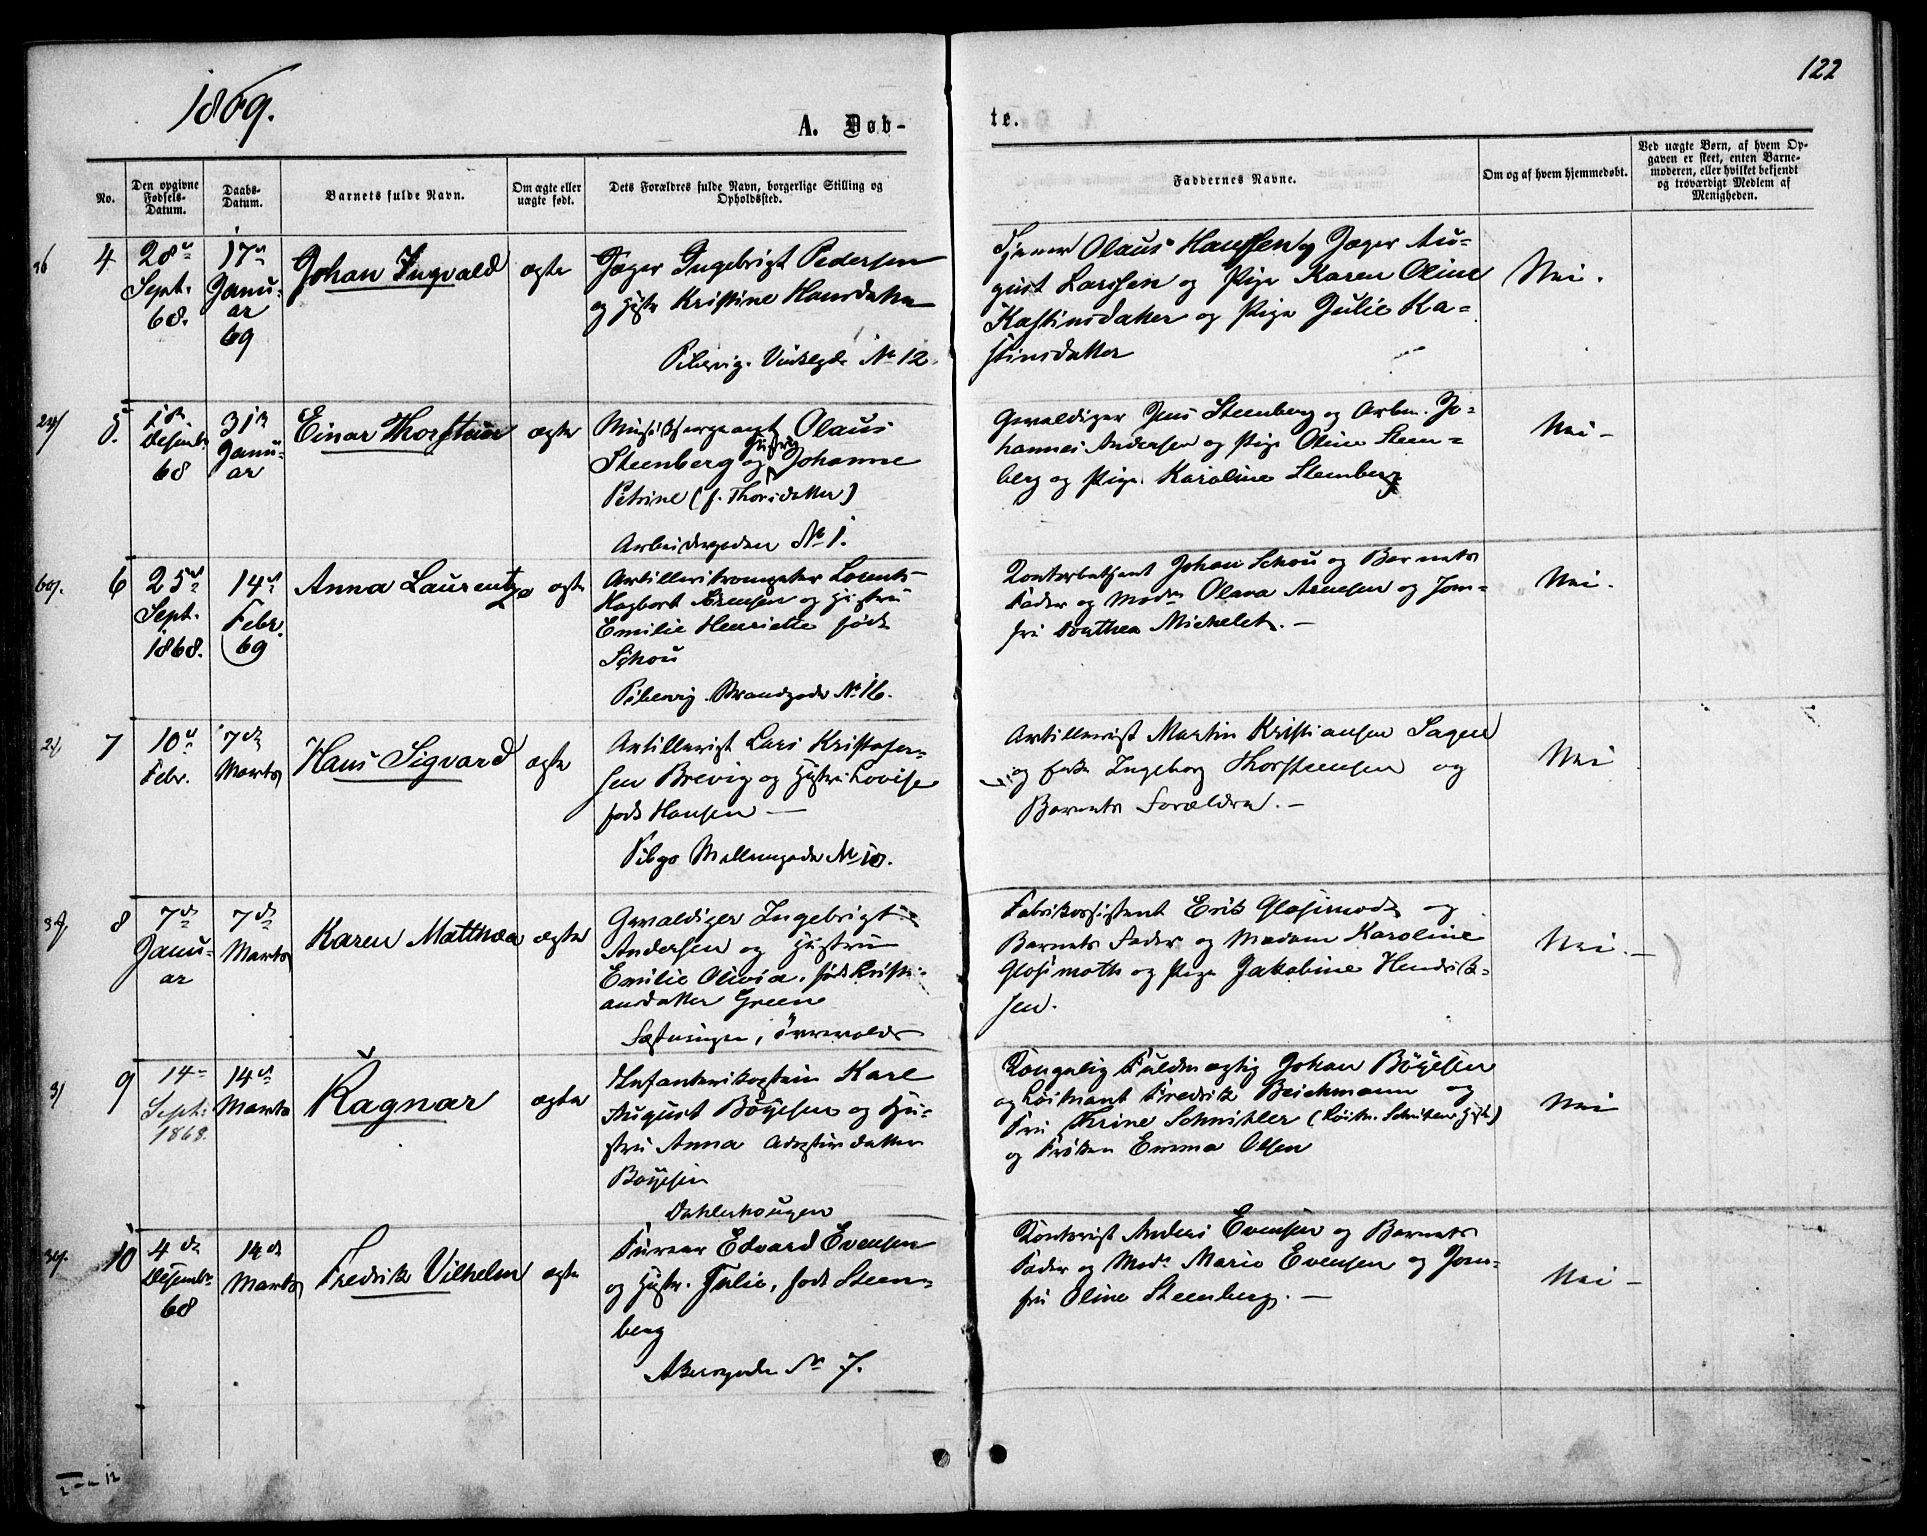 1869.
122
A. Døb-
te.
No.
Den opgivne
Fødsels-
Datum.
Daabs-
Datum.
Barnets fulde Navn.
Om ægte eller
uægte født.
Dets Forældres fulde Navn, borgerlige Stilling og
Opholdssted.
Faddernes Navne.
Om og af hvem hjemmedøbt.
Ved uægte Børn, af hvem Op-
gaven er skeet, enten Barne-
moderen, eller hvilket bekjendt
og troværdigt Medlem af
Menigheden.
4
28de
Sept.
68.
17de
Janu-
ar
69
Johan Ingvald
ægte
Jæger Ingebrigt Pedersen
og Hstr Kristine Hansdatter
Pibervig. No 12.
Olaus Hanssen og Jæger Au-
gust Larssen og Pige Karen Oline
Kastinsdatter og Pige Julie Ka-
stinsdatter
Nei.
5.
1ste
Desemb.
68
31te
Janu-
ar
Einar Thorstein
ægte
Musiksergeant Olaus
Steenberg og Hustru Johanne
Petrine (f. Thorsdatter)
Arbeidergaden No 1.
Gevaldiger Jens Steenberg og Arbm. Jo-
hannes Andersen og Pige Oline Steen-
berg og Pige Karoline Steenberg
Nei -
6
25de
Sept.
1868.
14de
Febr.
69
Anna Laurentza
ægte
Artilleritrompeter Lorents
Hagbart Arensen og Hustru
Emilie Henriette født
Schou
Pibervig. Brandgade No 16.
Kontorbetjent Johan Schou og Barnets
Fader og Madm Olava Arensen og Jom-
fru Dorthea Michelet. -
Nei.
7
10de
Febr.
7de
Marts
Hans Sigvard
ægte
Artillerist Lars Kristofer-
sen Brevig og Hustru Lovise
født Hansen -
Pibgs Mellemgade No 10.
Artillerist Martin Kristiansen Sagen
og Ingeborg Thorstensen og
Barnets Forældre. -
Nei
8
7de
Janu-
ar
7de
Marts
Karen Matthea
ægte
Gevaldiger Ingebrigt
Andersen og Hustru
Emilie Olivia, født Kristi-
ansdatter Greene
Fæstningen,
Fabrikassistent Erik Glosimodt og
Barnets Fader og Madam Karoline
Glosimoth og Pige Jakobine Hendrik-
sen.
Nei. -
9
14de
Sept.
1868.
14de
Marts
Ragnar
ægte
Infanterikaptein Karl
August Böyesen og Hu-
stru Anna datter
Böyesen
Dahlehougen
Kongelig Fuldmægtig Johan Böyesen
og Løitnant Fredrik Beichmann og
Fru Trine Schnitler (Løitn. Schnitlers Hustr)
og Frøken Emma Olsen
Nei
10
4de
Desembr.
68
14de
Marts
Fredrik Vilhelm
ægte
Furer Edvard Evensen
og Hustr. Julie, født Steen-
berg
Akersgade No 7.
Kontorist Anders Evensen og Barnets
Fader og Madm Marie Evensen og Jom-
fru Eline Steenberg. -
Nei -